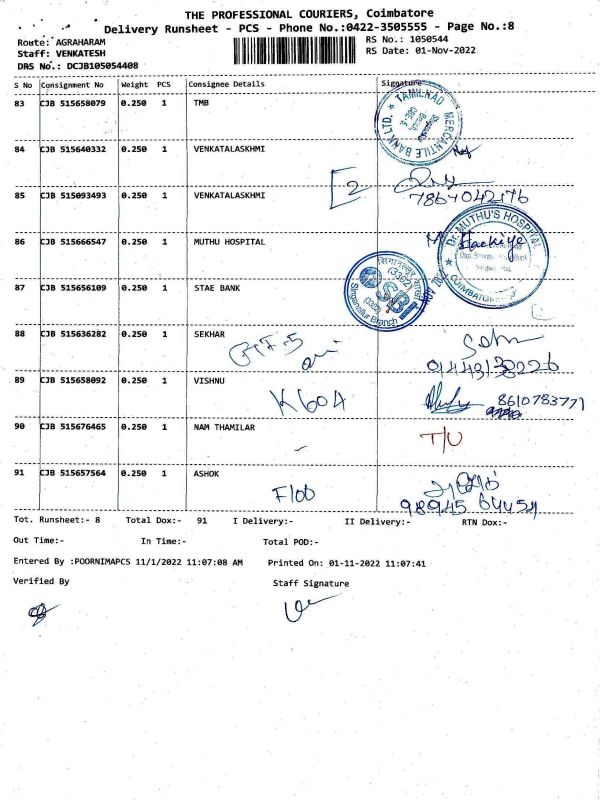 THE PROFESSIONAL COURIERS, Coimbatore
Delivery Runsheet - PCS - Phone No.:0422-3505555 - Page No.:8
Route: AGRAHARAM
RS No.: 1050544
Staff: VENKATESH
RS Date: 01-Nov-2022
DRS No.: DCJB105054408
S No Consignment No Weight PCS Consignee Details Signature
83 CJB 515658079 0.250 1 TMB
TAMILNAD MERCANTILE BANK LTD.
84 CJB 515640332 0.250 1 VENKATALASKHMI
[2
85 CJB 515093493 0.250 1 VENKATALASKHMI
86 CJB 515666547 0.250 1 MUTHU HOSPITAL
Dr. MUTHU'S HOSPITAL
COIMBATORE
87 CJB 515656109 0.250 1 STAE BANK
Singanallur Branch
88 CJB 515636282 0.250 1 SEKHAR
89 CJB 515658092 0.250 1 VISHNU
K60A
8610783771
90 CJB 515676465 0.250 1 NAM THAMILAR
T/U
91 CJB 515657564 0.250 1 ASHOK
F100
98945 64454
Tot. Runsheet:- 8 Total Dox:- 91 I Delivery:- II Delivery:- RTN Dox:-
Out Time:- In Time:- Total POD:-
Entered By :POORNIMAPCS 11/1/2022 11:07:08 AM Printed On: 01-11-2022 11:07:41
Verified By Staff Signature